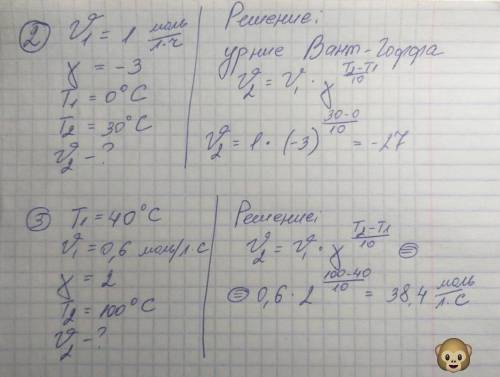 ② V₁ = 1 моль/л·ч
γ = -3
T₁ = 0°C
T₂ = 30°C
V₂ - ?
Решение:
ур-ние Вант-Гоффа
V₂ = V₁ · γ^(T₂-T₁)/10
V₂ = 1 · (-3)^(30-0)/10 = -27
③ T₁ = 40°C
V₁ = 0,6 моль/л·с
γ = 2
T₂ = 100°C
V₂ - ?
Решение:
V₂ = V₁ · γ^(T₂-T₁)/10 ⊜
⊜ 0,6 · 2^(100-40)/10 = 38,4 моль/л·с